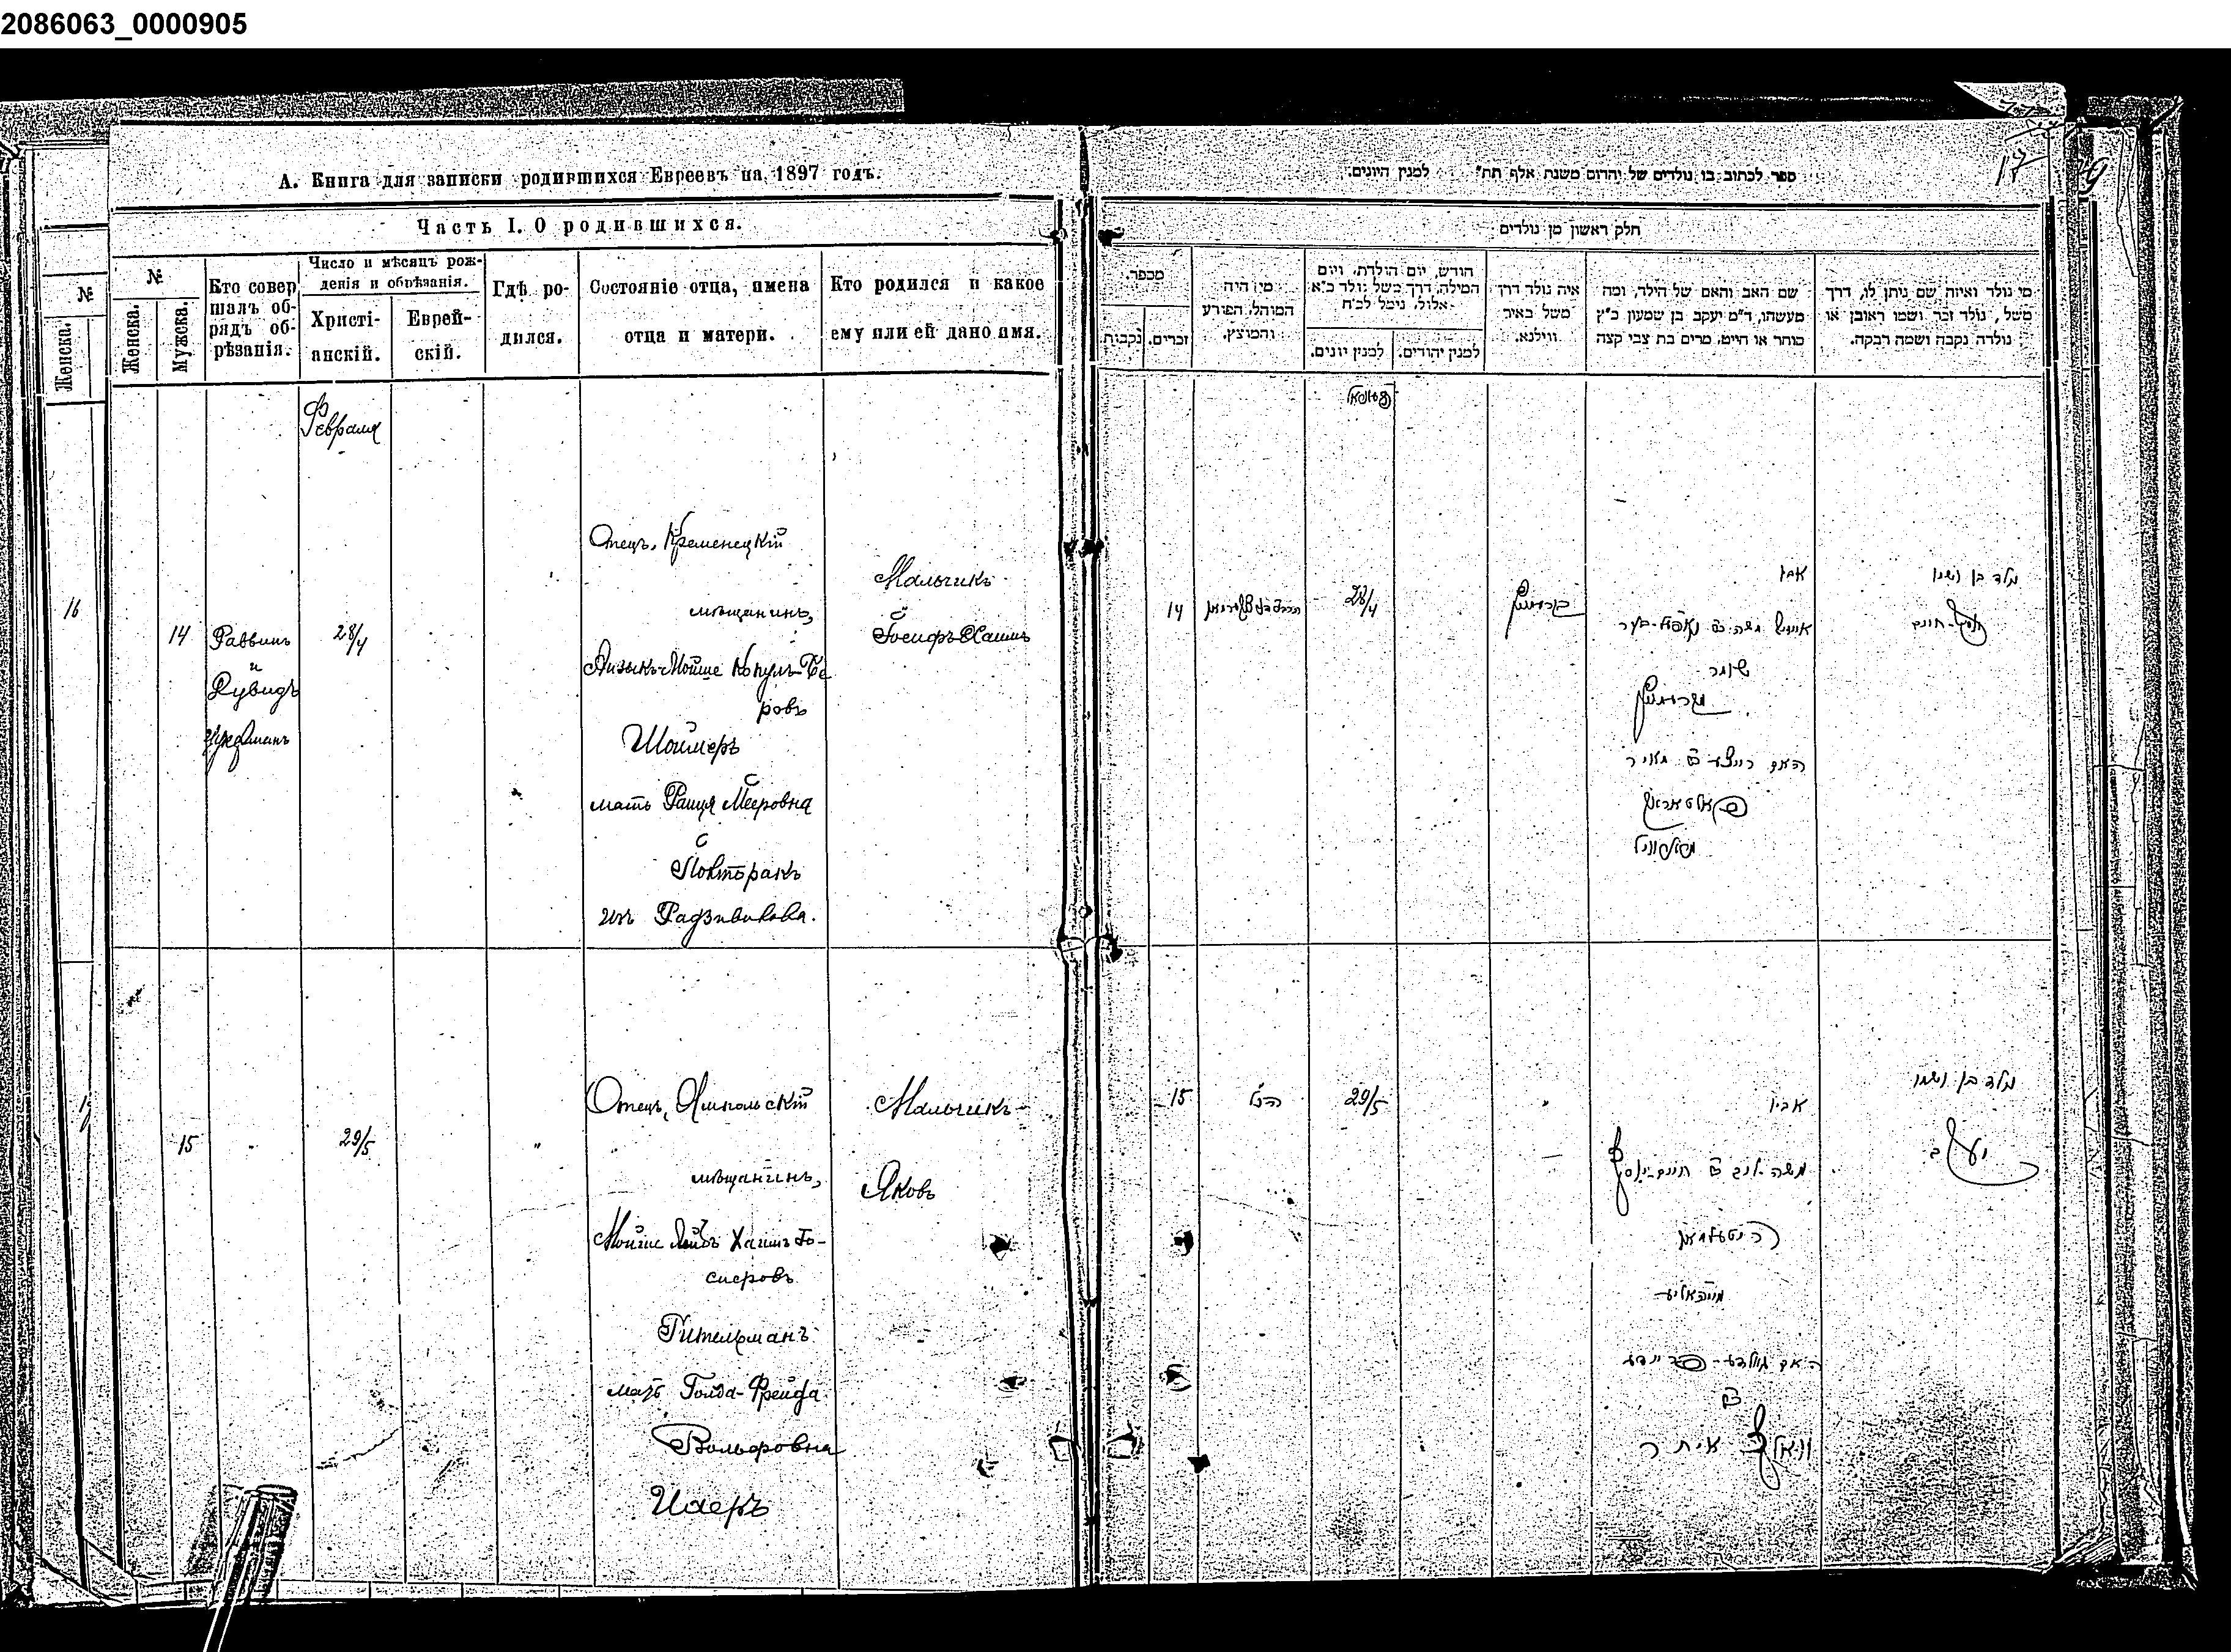 2086063_0000905
А. Книга для записки родившихся Евреевъ на 1897 годъ.
Часть I. О родившихся.
№
№
Женска.
Женска.
Мужска.
Кто совер
шалъ об-
рядъ об-
рѣзанія.
Число и мѣсяцъ рож-
денія и обрѣзанія.
Христі-
анскій.
Еврей-
скій.
Гдѣ ро-
дился.
Состояніе отца, имена
отца и матери.
Кто родился и какое
ему или ей дано имя.
Февраля
16
14
Раввинъ
и
Дувидъ
28/4
Отецъ, Кременецкій
мѣщанинъ,
Айзыкъ-Мойше Копулъ-Бе
ровъ
Шоймеръ
мать Раиця Мееровна
изъ Радзивилова.
Мальчикъ
Іосифъ Хаимъ
15
"
29/5
"
Отецъ, Ямпольскій
мѣщанинъ,
Мойше Лейбъ Хаимъ Іо-
сифовъ
Гительманъ
мать Голда-Фрейда
Вольфовна
Мальчикъ
Яковъ
17
ספר לכתוב בו נולדים של יהדום משנת אלף תת" למנין היונים.
חלק ראשון מן נולדים
מכפר.
נקבות
זכרים.
מי היה
המוהל, הפורע
והמוצץ.
חודש, יום הולדת, ויום
המילה, דרך משל נולד כ"א
אלול, נימל לכ"ח
למנין יונים.
למנין יהודים.
איה נולד דרך
משל באיר
ווילנא.
שם האב והאם של הילד, ומה
מעשהו, ד"מ יעקב בן שמעון כ"ץ
סוחר או חייט, מרים בת צבי קצה
מי נולד ואיזה שם ניתן לו, דרך
משל, נולד זכר ושמו ראובן או
נולדה נקבה ושמה רבקה.
14
28/4
אביו
שומר
האם רייצע בת מאיר
נולד בן ושמו
יוסף-חיים
15
הנ"ל
29/5
"
אביו
משה ליב בן חיים-יוסף
גיטעלמאן
האם גולדע-פריידע
בת
וואלף
נולד בן ושמו
יעקב